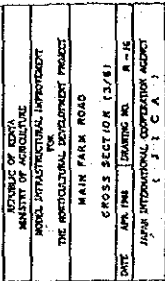 REPUBLIC OF KENYA
MINISTRY OF AGRICULTURE
MODEL INFRASTRUCTURAL IMPROVEMENT
FOR
THE HORTICULTURAL DEVELOPMENT PROJECT
MAIN FARM ROAD
CROSS SECTION (3/6)
DATE APR. 1988 DRAWING NO. R-16
JAPAN INTERNATIONAL COOPERATION AGENCY
(JICA)